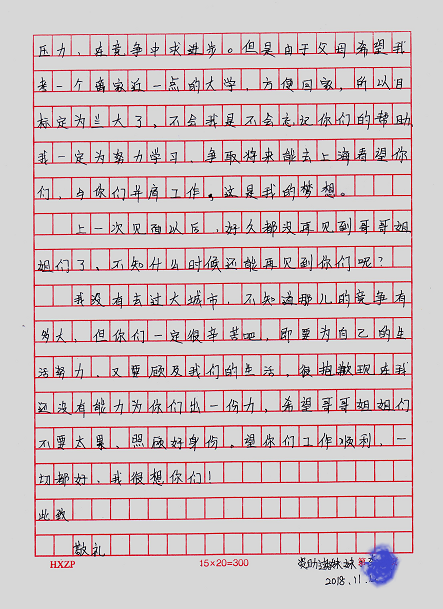 压力，在竞争中求进步。但是由于父母希望我
考一个离家近一点的大学，方便回家，所以目
标定为兰大了，不会我是不会忘记你们的帮助，
我一定为努力学习，争取将来能去上海看望你
们，与你们并肩工作。这是我的梦想。
上一次见面以后，好久都没再见到哥哥姐
姐们了，不知什么时候还能再见到你们呢？
我没有去过大城市，不知道那儿的竞争有
多大，但你们一定很辛苦吧，即要为自己的生
活努力，又要顾及我们的生活，很抱歉现在我
还没有能力为你们出一份力，希望哥哥姐姐们
不要太累，照顾好身份，望你们工作顺利，一
切都好，我很想你们！
此致
敬礼
HXZP 15×20=300 妹妹
2018.11.